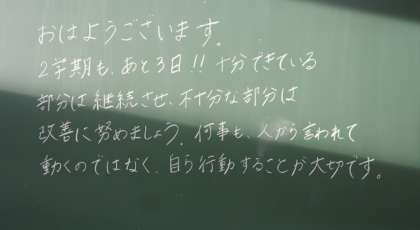 おはようございます。
2学期も、あと3日!! 十分できている
部分は継続させ、不十分な部分は
改善に努めましょう。何事も、人から言われて
動くのではなく、自ら行動することが大切です。